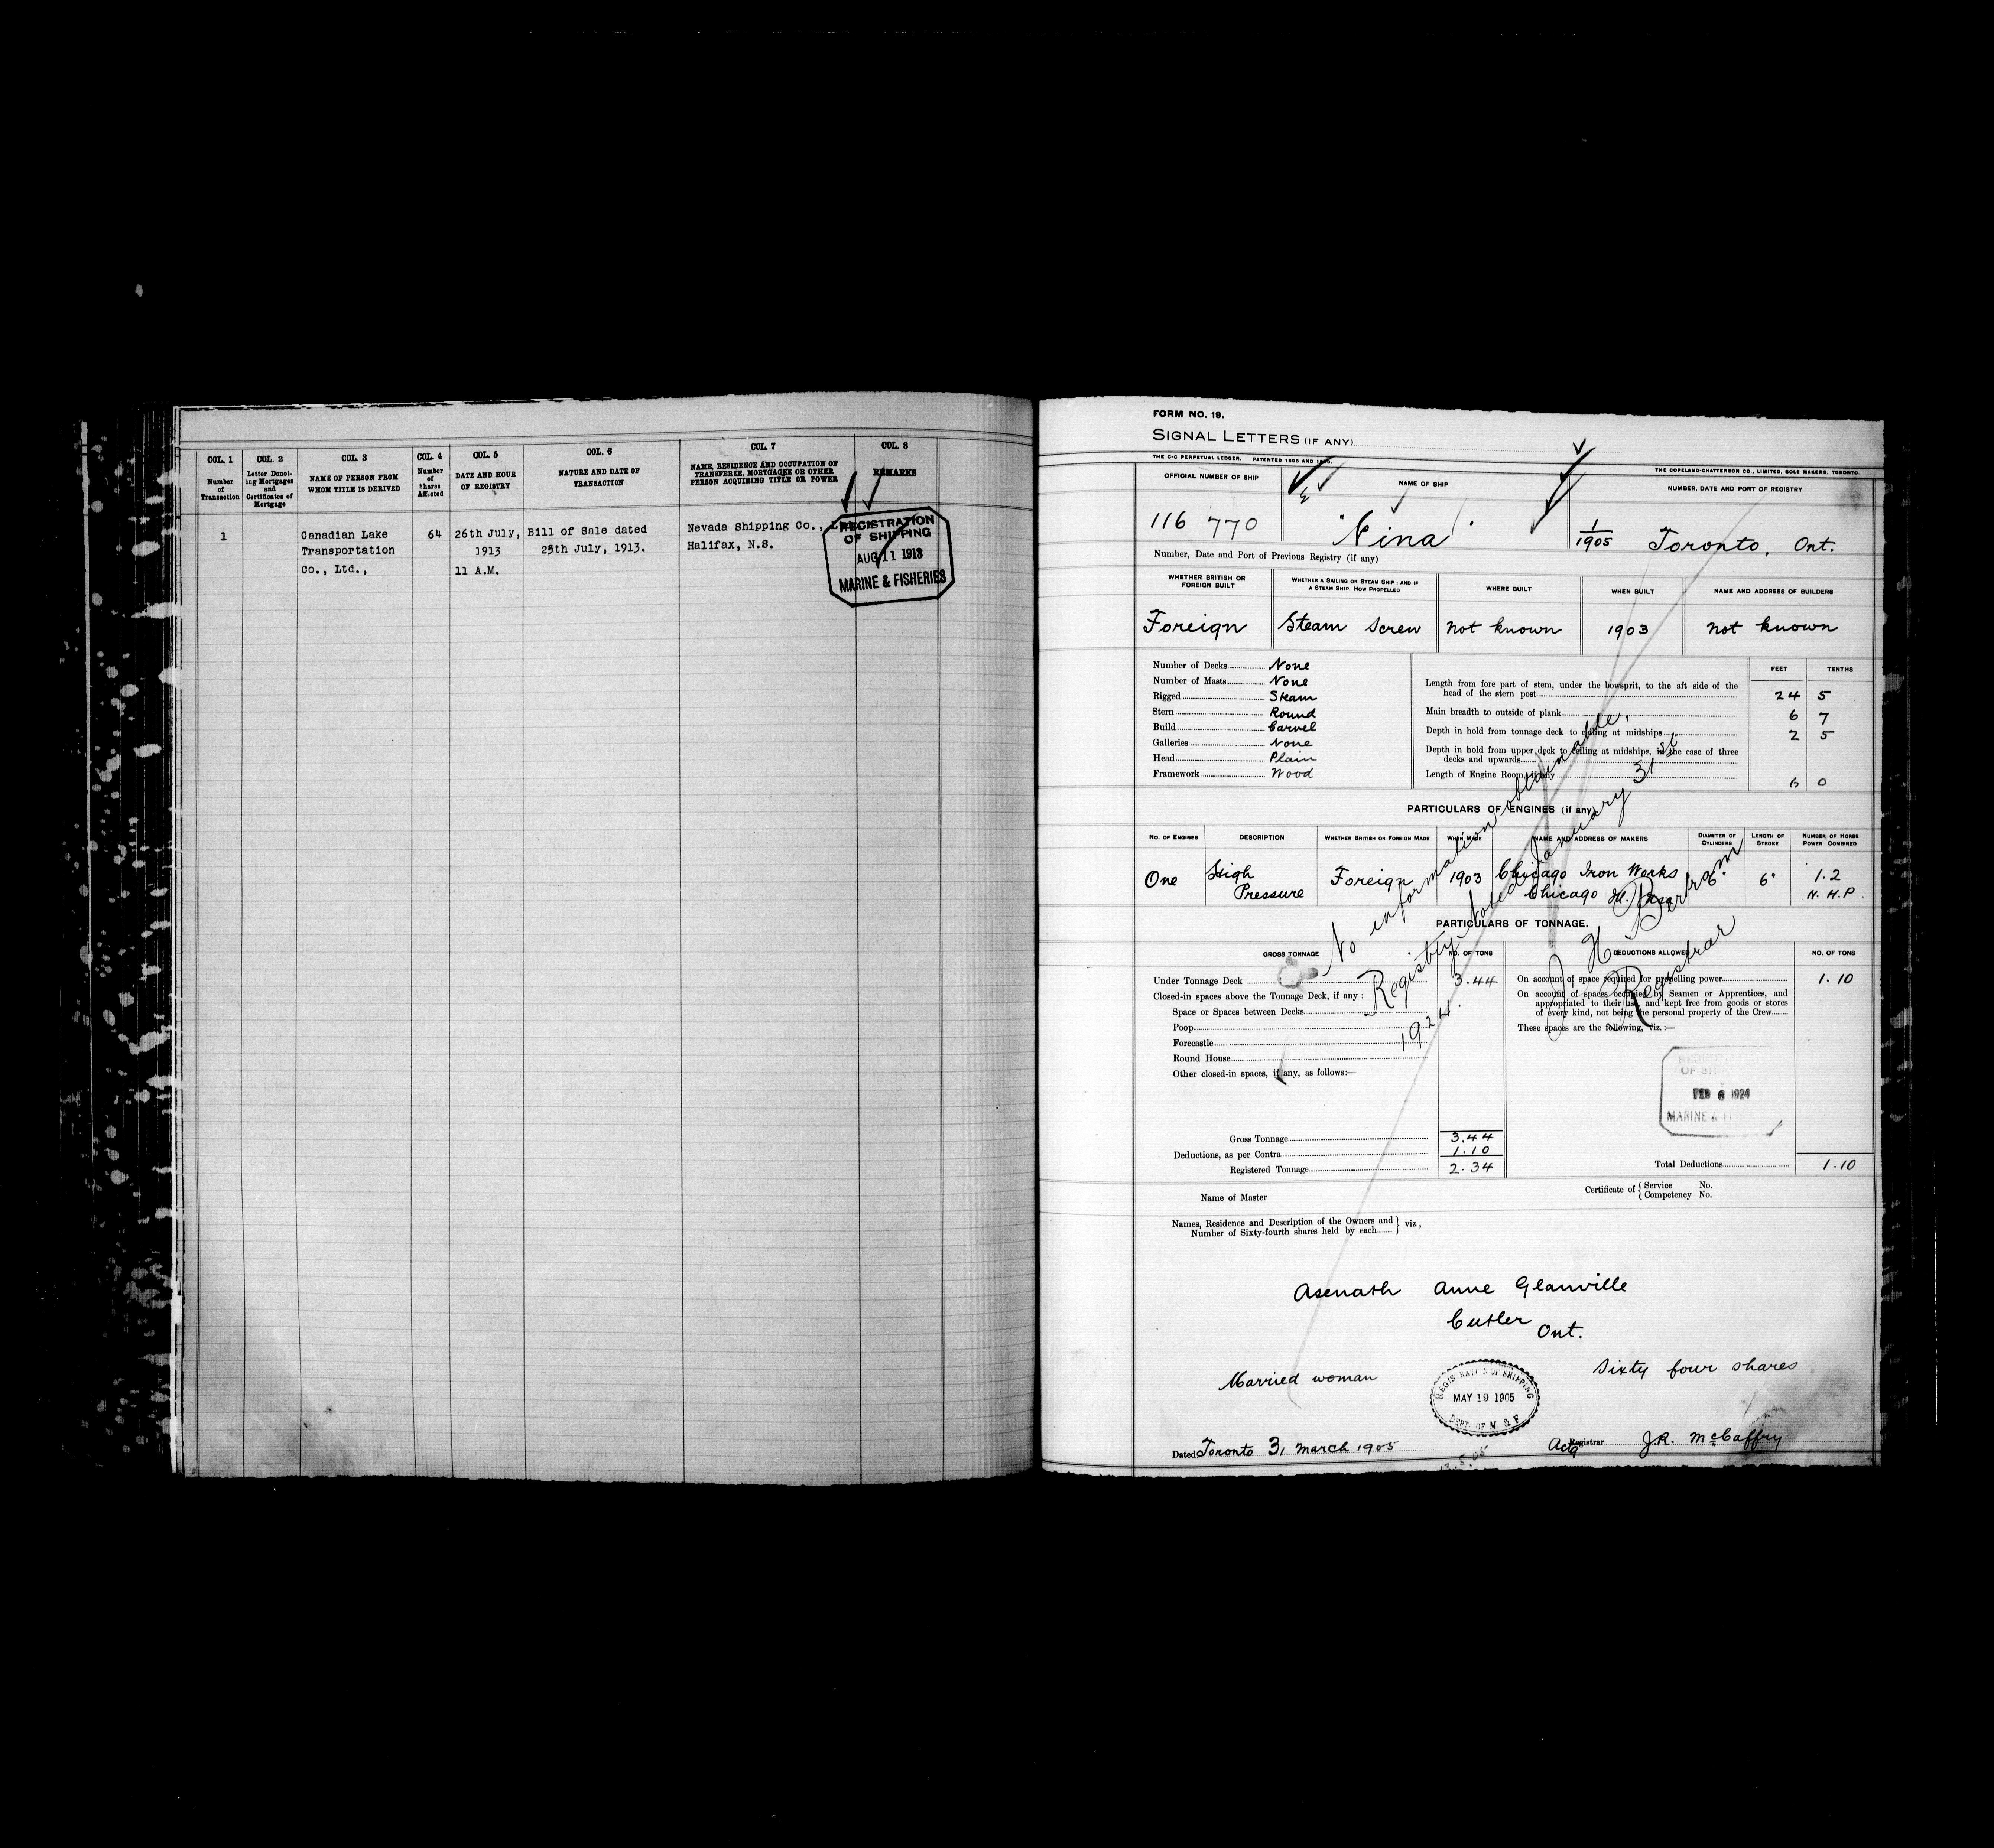 COL. 1 COL. 2 COL. 3 COL. 4 COL. 5 COL. 6 COL. 7 COL. 8
Number of Transaction
Letter Denoting Mortgages and Certificates of Mortgage
NAME OF PERSON FROM WHOM TITLE IS DERIVED
Number of Shares Affected
DATE AND HOUR OF REGISTRY
NATURE AND DATE OF TRANSACTION
NAME, RESIDENCE AND OCCUPATION OF TRANSFEREE, MORTGAGEE OR OTHER PERSON ACQUIRING TITLE OR POWER
REMARKS
1 Canadian Lake 64 26th July, Bill of Sale dated Nevada Shipping Co.,
Transportation 1913 25th July, 1913. Halifax, N.S.
Co., Ltd., 11 A.M.
REGISTRATION
OF SHIPPING
AUG 11 1913
MARINE & FISHERIES
FORM NO. 19.
SIGNAL LETTERS (IF ANY)
THE C-C PERPETUAL LEDGER. PATENTED 1896 AND
THE COPELAND-CHATTERSON CO., LIMITED, SOLE MAKERS, TORONTO.
OFFICIAL NUMBER OF SHIP NAME OF SHIP NUMBER, DATE AND PORT OF REGISTRY
116 770 "Nina" 1/1905 Toronto, Ont.
Number, Date and Port of Previous Registry (if any)
WHETHER BRITISH OR FOREIGN BUILT
WHETHER A SAILING OR STEAM SHIP; AND IF A STEAM SHIP, HOW PROPELLED
WHERE BUILT WHEN BUILT NAME AND ADDRESS OF BUILDERS
Foreign Steam Screw not known 1903 not known
FEET TENTHS
Number of Decks None
Number of Masts None
Rigged Steam
Stern Round
Build Carvel
Galleries None
Head Plain
Framework Wood
Length from fore part of stem, under the bowsprit, to the aft side of the
head of the stern post 24 5
Main breadth to outside of plank 6 7
Depth in hold from tonnage deck to ceiling at midships 2 5
Depth in hold from upper deck to ceiling at midships, in the case of three
decks and upwards
Length of Engine Room, if any 6 0
PARTICULARS OF ENGINES (if any)
NO. OF ENGINES DESCRIPTION WHETHER BRITISH OR FOREIGN MADE WHEN MADE NAME AND ADDRESS OF MAKERS DIAMETER OF CYLINDERS LENGTH OF STROKE NUMBER OF HORSE POWER COMBINED
One High Foreign 1903 Chicago Iron Works 6" 6" 1.2
Pressure Chicago N.H.P.
PARTICULARS OF TONNAGE.
GROSS TONNAGE NO. OF TONS DEDUCTIONS ALLOWED NO. OF TONS
Under Tonnage Deck 3.44
Closed-in spaces above the Tonnage Deck, if any:
Space or Spaces between Decks
Poop
Forecastle
Round House
Other closed-in spaces, if any, as follows:—
On account of space required for propelling power 1.10
On account of spaces occupied by Seamen or Apprentices, and
appropriated to their use, and kept free from goods or stores
of every kind, not being the personal property of the Crew
These spaces are the following, viz.:—
No information obtainable.
Registry noted January 31st
1924.
H. Bertram
Registrar
OF
FEB 6 1924
MARINE &
Gross Tonnage 3.44
Deductions, as per Contra 1.10
Registered Tonnage 2.34
Total Deductions 1.10
Name of Master
Certificate of { Service No.
Competency No.
Names, Residence and Description of the Owners and } viz.,
Number of Sixty-fourth shares held by each
Asenath Anne Glanville
Cutler
Ont.
Married woman Sixty four shares
REGISTRATION OF SHIPPING
MAY 19 1905
DEPT. OF M & F
Dated Toronto 31 March 1905 Actg Registrar J.R. McCaffry